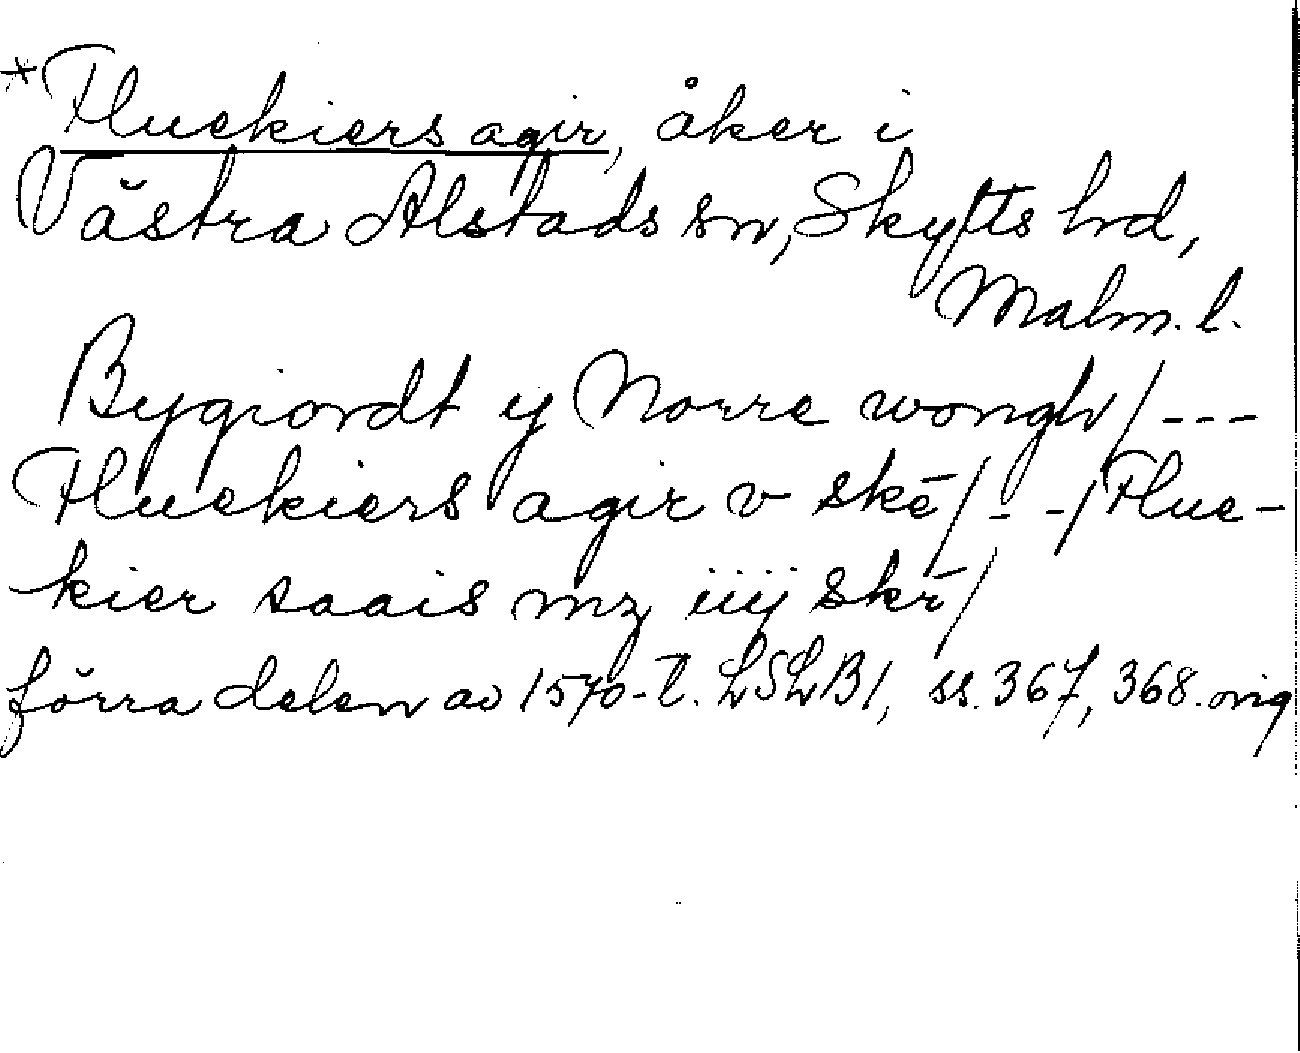 *Fluekiers agir, åker i
Västra Alstads sn, Skytts hd,
Malm. l.
Bygiordt y Norre wongh/ ---
Fluekiers agir v skē/ - -/ Flue-
kier saais mz iiij skr̄/
förra delen av 1570-t. LSLB1, ss. 367, 368. orig